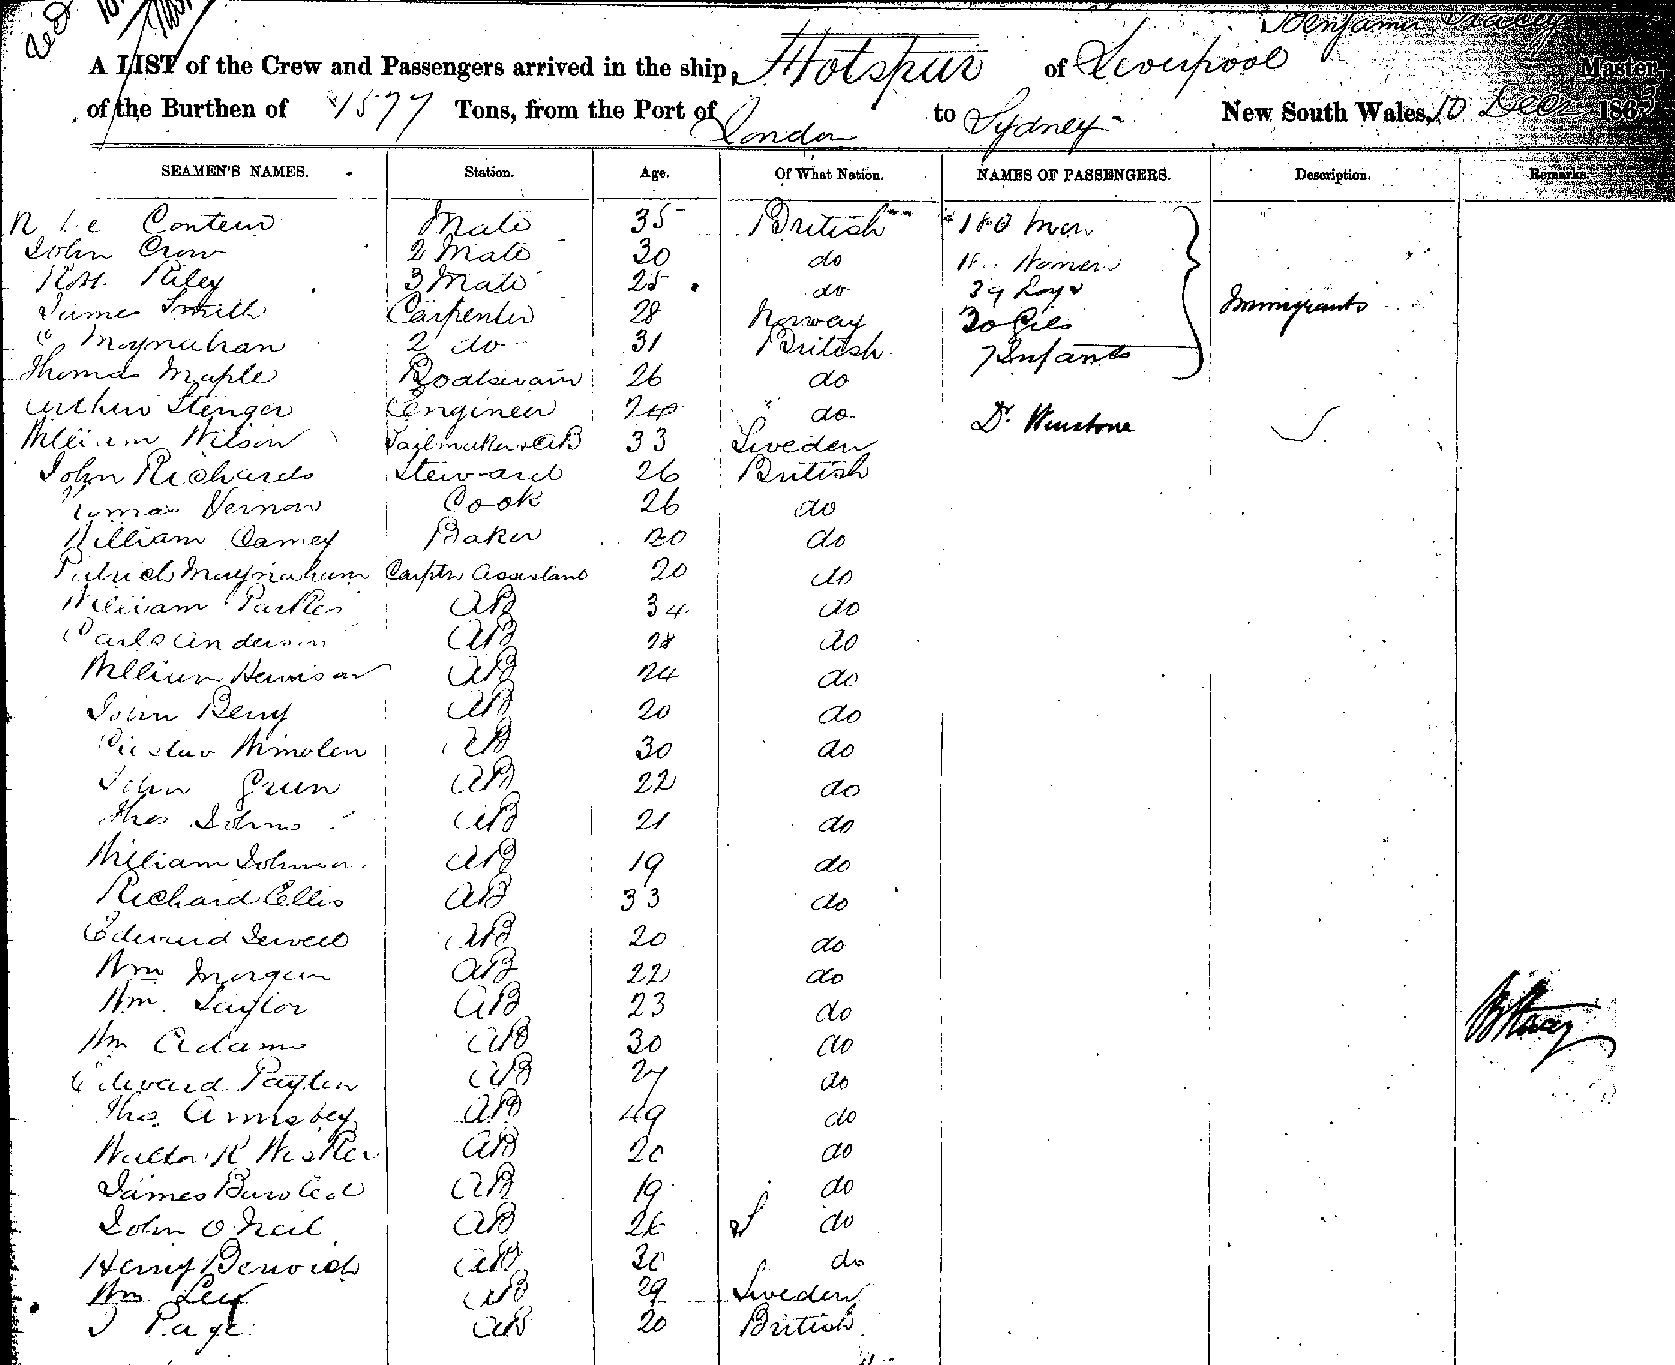 Benjamin
A LIST of the Crew and Passengers arrived in the ship, Hotspur of Liverpool Master,
of the Burthen of 1577 Tons, from the Port of London to Sydney New South Wales, 10 Decr 186
SEAMEN'S NAMES. Station. Age. Of What Nation. NAMES OF PASSENGERS. Description. Remarks.
Mate 35 British 180 Men
John Crow 2 Mate 30 do Women
Riley 3 Mate 25 do 39 Boys Immigrants
James Smith Carpenter 28 Norway 30 Girls
C Moynahan 2 do 31 British 7 Infants
Thomas Maple Boatswain 26 do
Arthur Stenger Engineer 24 do Dr. Winstone
William Wilson Sailmaker & AB 33 Sweden
John Richards Steward 26 British
Vernon Cook 26 do
William Camey Baker 20 do
Patrick Moynaham Carptr Assistant 20 do
William Parkes AB 34 do
Carl Anderson AB 28 do
William Hewison AB 24 do
John Berry AB 20 do
Gustav AB 30 do
John Grun AB 22 do
Thos Johns AB 21 do
William Johnson AB 19 do
Richard Ellis AB 33 do
Edward Sewell AB 20 do
Wm Morgan AB 22 do
Wm. Taylor AB 23 do
Wm Adams AB 30 do
Edward Payten AB 27 do
Thos Armsbey AB 49 do
Walter R AB 20 do
James AB 19 do
John O'Neil AB 26 do
Henry Berwick AB 30 do
Wm Lex AB 29 Sweden
J Page AB 20 British